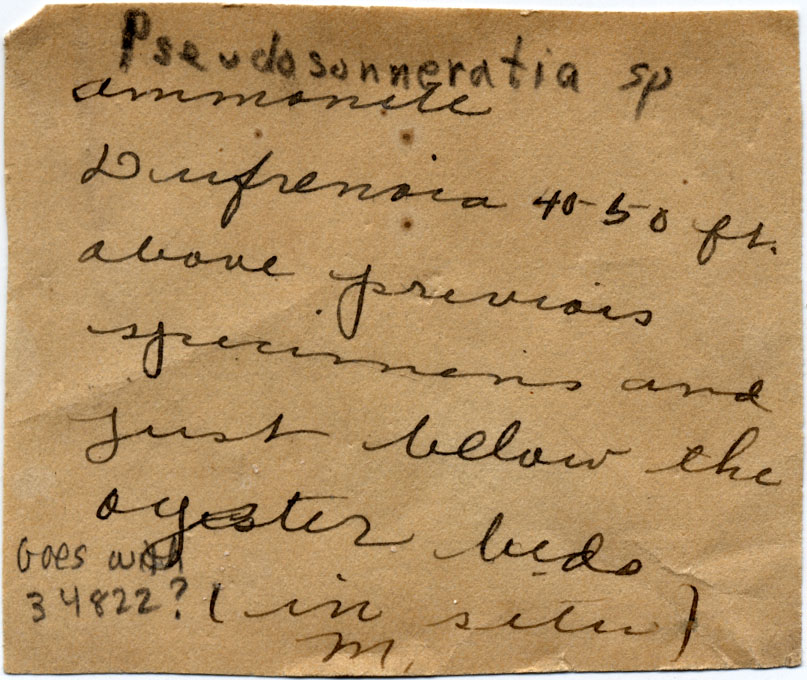 Pseudosonneratia sp
ammonite
Dufrenoia 40-50 ft.
above previous
specimens and
just below the
oyster beds
Goes with
34822?
(in situ)
M.